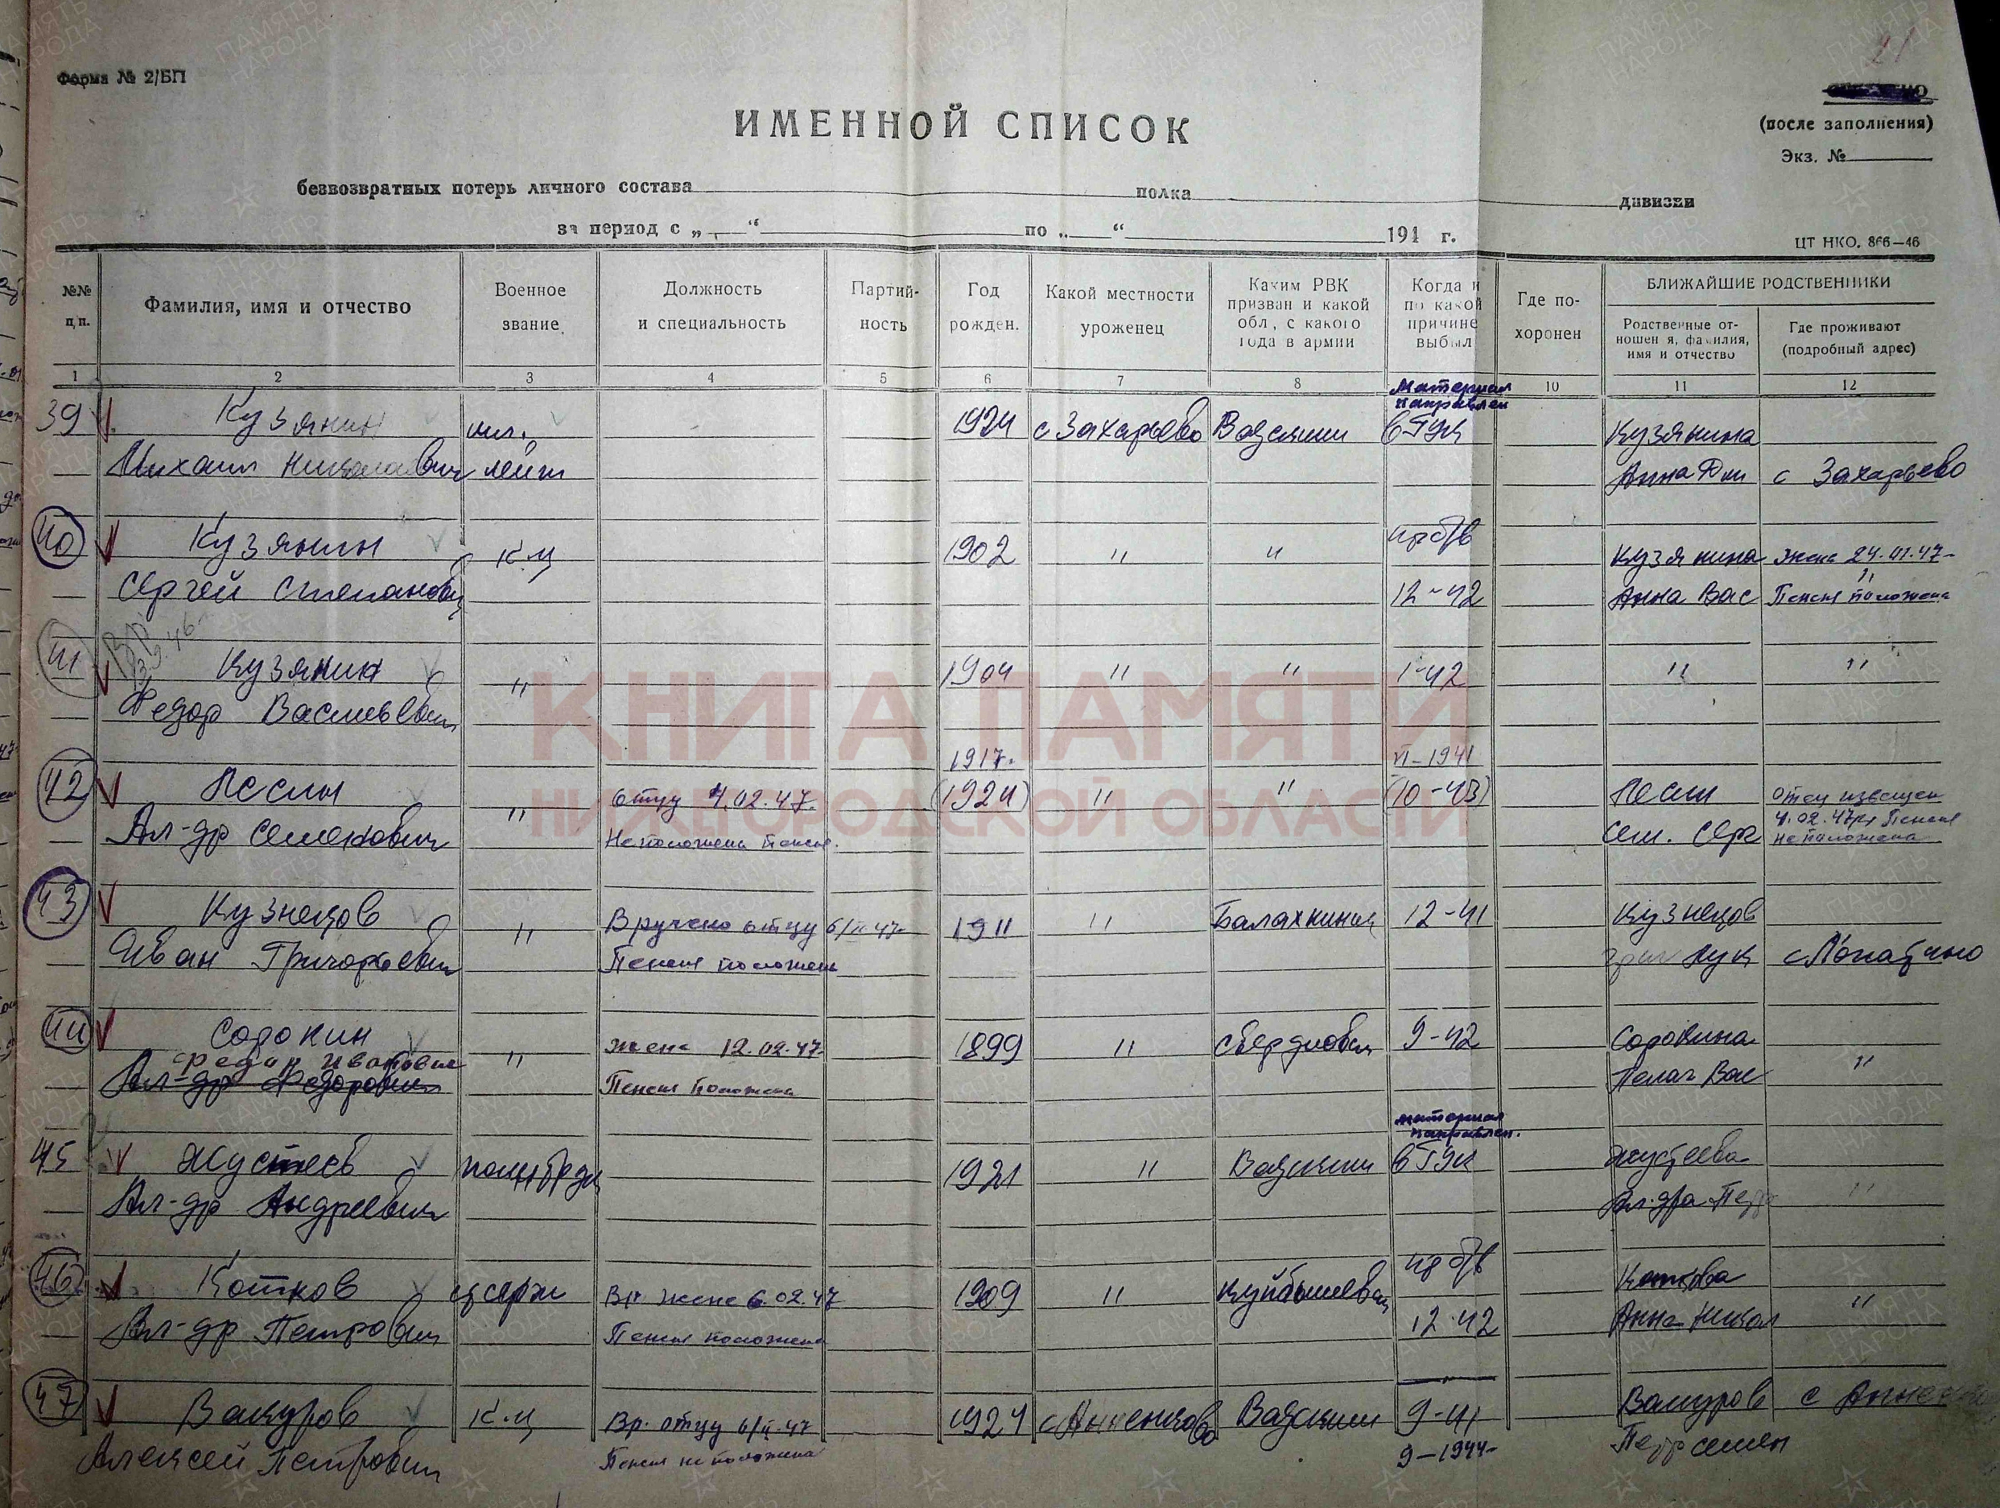 21
Форма № 2/БП
(после заполнения)
Экз. №
ИМЕННОЙ СПИСОК
безвозвратных потерь личного состава полка дивизии
за период с „ “ по „ “ 194 г.
ЦТ НКО. 866—46
№№ п.п.
Фамилия, имя и отчество
Военное звание
Должность и специальность
Партий-ность
Год рожден.
Какой местности уроженец
Каким РВК призван и какой обл., с какого года в армии
Когда и по какой причине выбыл
Где по-хоронен
БЛИЖАЙШИЕ РОДСТВЕННИКИ
Родственные от-ношен я, фамилия, имя и отчество
Где проживают (подробный адрес)
1 2 3 4 5 6 7 8 10 11 12
материал направлен
39 Кузянин мл. 1924 с Захарьево Вадский в ГУК Кузянина
Михаил Николаевич лейт Анна с Захарьево
40 Кузянин К.ц 1902 " " пр б/в Кузянина жене 24.01.47
Сергей Степанович 12-42 Анна Вас Пенсия положена "
41 Кузянин " 1904 " " 1-42 " "
Федор Васильевич
1917. VI-1941
42 Песин " отцу 4.02.47. (1924) " " (10-43) Песин отец извещен
Ал-др Семенович Не положена пенсия. Сем. Серг 4.02.47 Пенсия не положена
43 Кузнецов " Вручено отцу 6/II 47 1911 " Балахнинск 12-41 Кузнецов
Иван Григорьевич Пенсия положена Лук с Лопатино
44 Сорокин " жене 12.02.47 1899 " Свердловск 9-42 Сорокина
Федор Иванович
Ал-др Федорович Пенсия положена Пелаг Вас "
материал направлен.
45 Жустеев 1921 " Вадский в ГУК Жустеева
Ал-др Андреевич Ал-дра "
46 Котков Вр. жене 6.02.47 1909 " Куйбышевск пр б/в Коткова
Ал-др Петрович Пенсия положена 12-42 Анна Никол "
47 Вакуров К.ц Вр. отцу 6/II-47 1924 с Анненково Вадский 9-41 Вакуров с
Алексей Петрович Пенсия не положена 9-1944- Петр Семен
КНИГА ПАМЯТИ
НИЖЕГОРОДСКОЙ ОБЛАСТИ
ПАМЯТЬ НАРОДА